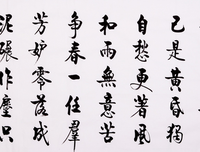 已是黃昏獨
自愁更著風
和雨無意苦
争春一任羣
芳妒零落成
泥碾作塵只